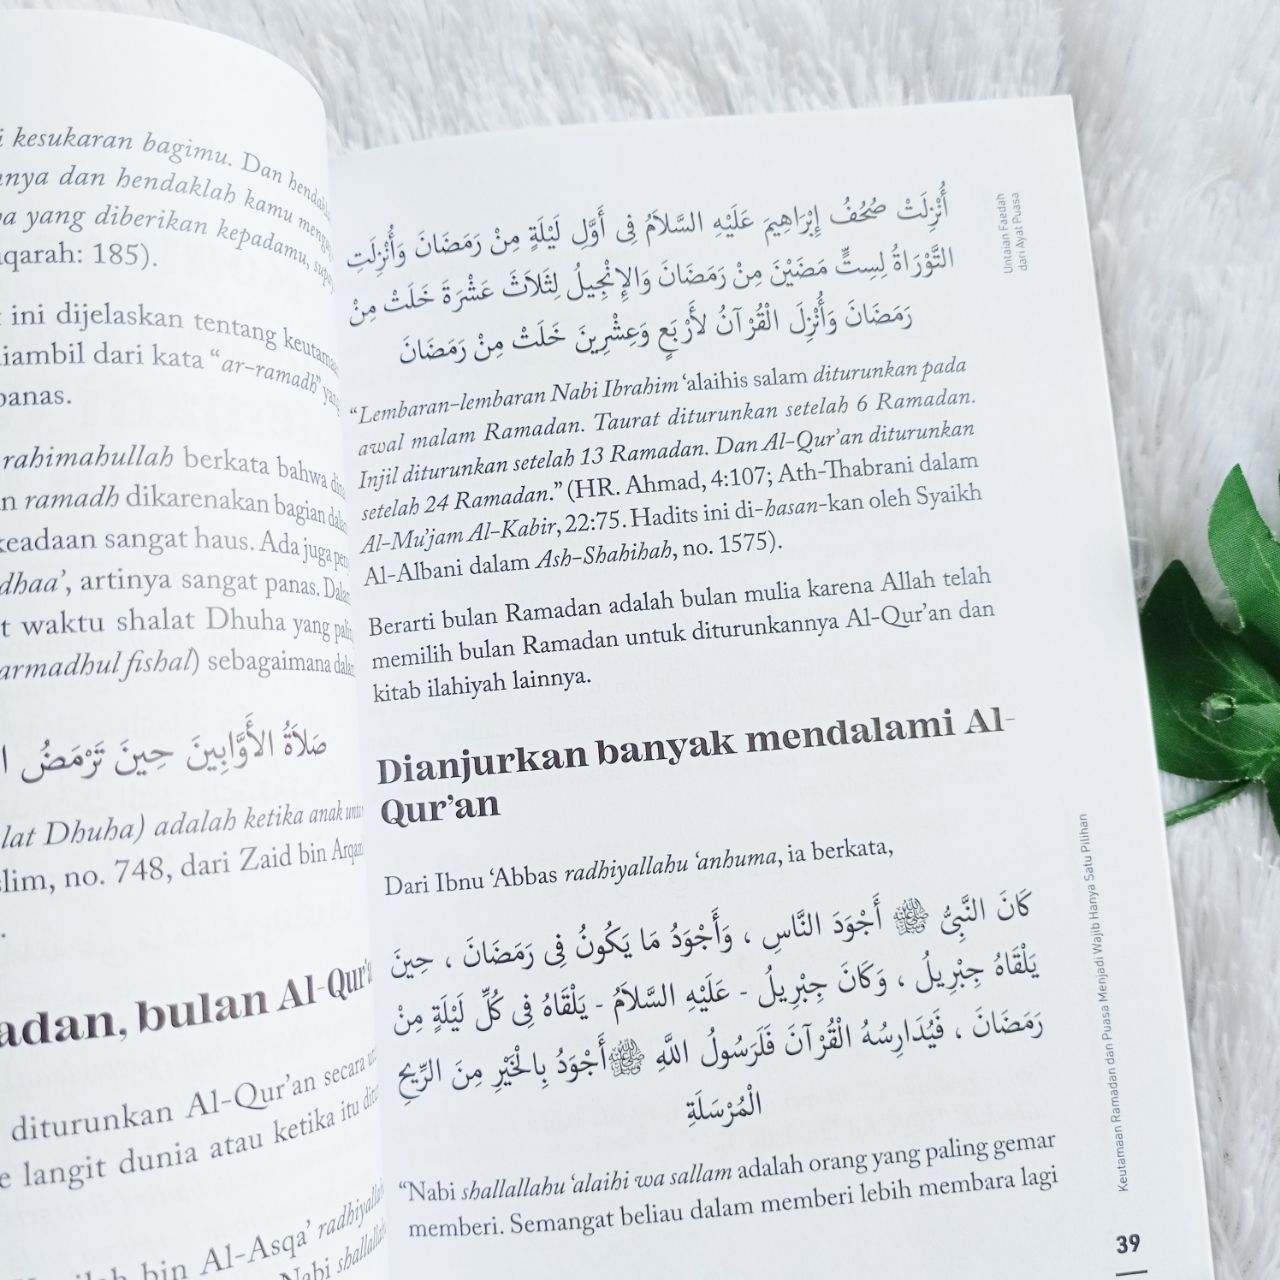 i kesukaran bagimu. Dan
nya dan hendaklah kamu
yang diberikan kepadamu,
qarah: 185).
ini dijelaskan tentang
diambil dari kata “ar-ramadh”
panas.
rahimahullah berkata bahwa
n ramadh dikarenakan bagian
keadaan sangat haus. Ada juga
dhaa’, artinya sangat panas.
t waktu shalat Dhuha yang
armadhul fishal) sebagaimana
صَلاَةُ الأَوَّابِينَ حِينَ تَرْمَضُ
lat Dhuha) adalah ketika anak
slim, no. 748, dari Zaid bin Arqam
.
adan, bulan Al-Qur’a
diturunkan Al-Qur’an secara
e langit dunia atau ketika itu
bin Al-Asqa’ radhiyallah
Nabi shallallah
Untaian Faedah
dari Ayat Puasa
أُنْزِلَتْ صُحُفُ إِبْرَاهِيمَ عَلَيْهِ السَّلاَمُ فِى أَوَّلِ لَيْلَةٍ مِنْ رَمَضَانَ وَأُنْزِلَتِ
التَّوْرَاةُ لِسِتٍّ مَضَيْنَ مِنْ رَمَضَانَ وَالإِنْجِيلُ لِثَلاَثَ عَشْرَةَ خَلَتْ مِنْ
رَمَضَانَ وَأُنْزِلَ الْقُرْآنُ لأَرْبَعٍ وَعِشْرِينَ خَلَتْ مِنْ رَمَضَانَ
“Lembaran-lembaran Nabi Ibrahim ‘alaihis salam diturunkan pada
awal malam Ramadan. Taurat diturunkan setelah 6 Ramadan.
Injil diturunkan setelah 13 Ramadan. Dan Al-Qur’an diturunkan
setelah 24 Ramadan.” (HR. Ahmad, 4:107; Ath-Thabrani dalam
Al-Mu’jam Al-Kabir, 22:75. Hadits ini di-hasan-kan oleh Syaikh
Al-Albani dalam Ash-Shahihah, no. 1575).
Berarti bulan Ramadan adalah bulan mulia karena Allah telah
memilih bulan Ramadan untuk diturunkannya Al-Qur’an dan
kitab ilahiyah lainnya.
Dianjurkan banyak mendalami Al-
Qur’an
Dari Ibnu ‘Abbas radhiyallahu ‘anhuma, ia berkata,
كَانَ النَّبِىُّ ﷺ أَجْوَدَ النَّاسِ ، وَأَجْوَدُ مَا يَكُونُ فِى رَمَضَانَ ، حِينَ
يَلْقَاهُ جِبْرِيلُ ، وَكَانَ جِبْرِيلُ - عَلَيْهِ السَّلاَمُ - يَلْقَاهُ فِى كُلِّ لَيْلَةٍ مِنْ
رَمَضَانَ ، فَيُدَارِسُهُ الْقُرْآنَ فَلَرَسُولُ اللَّهِ ﷺ أَجْوَدُ بِالْخَيْرِ مِنَ الرِّيحِ
الْمُرْسَلَةِ
“Nabi shallallahu ‘alaihi wa sallam adalah orang yang paling gemar
memberi. Semangat beliau dalam memberi lebih membara lagi
Keutamaan Ramadan dan Puasa Menjadi Wajib Hanya Satu Pilihan
39